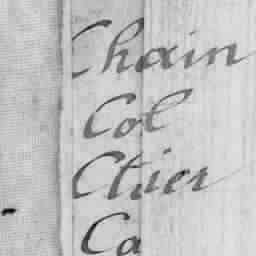 Chain
Col
Ctuer
Ca